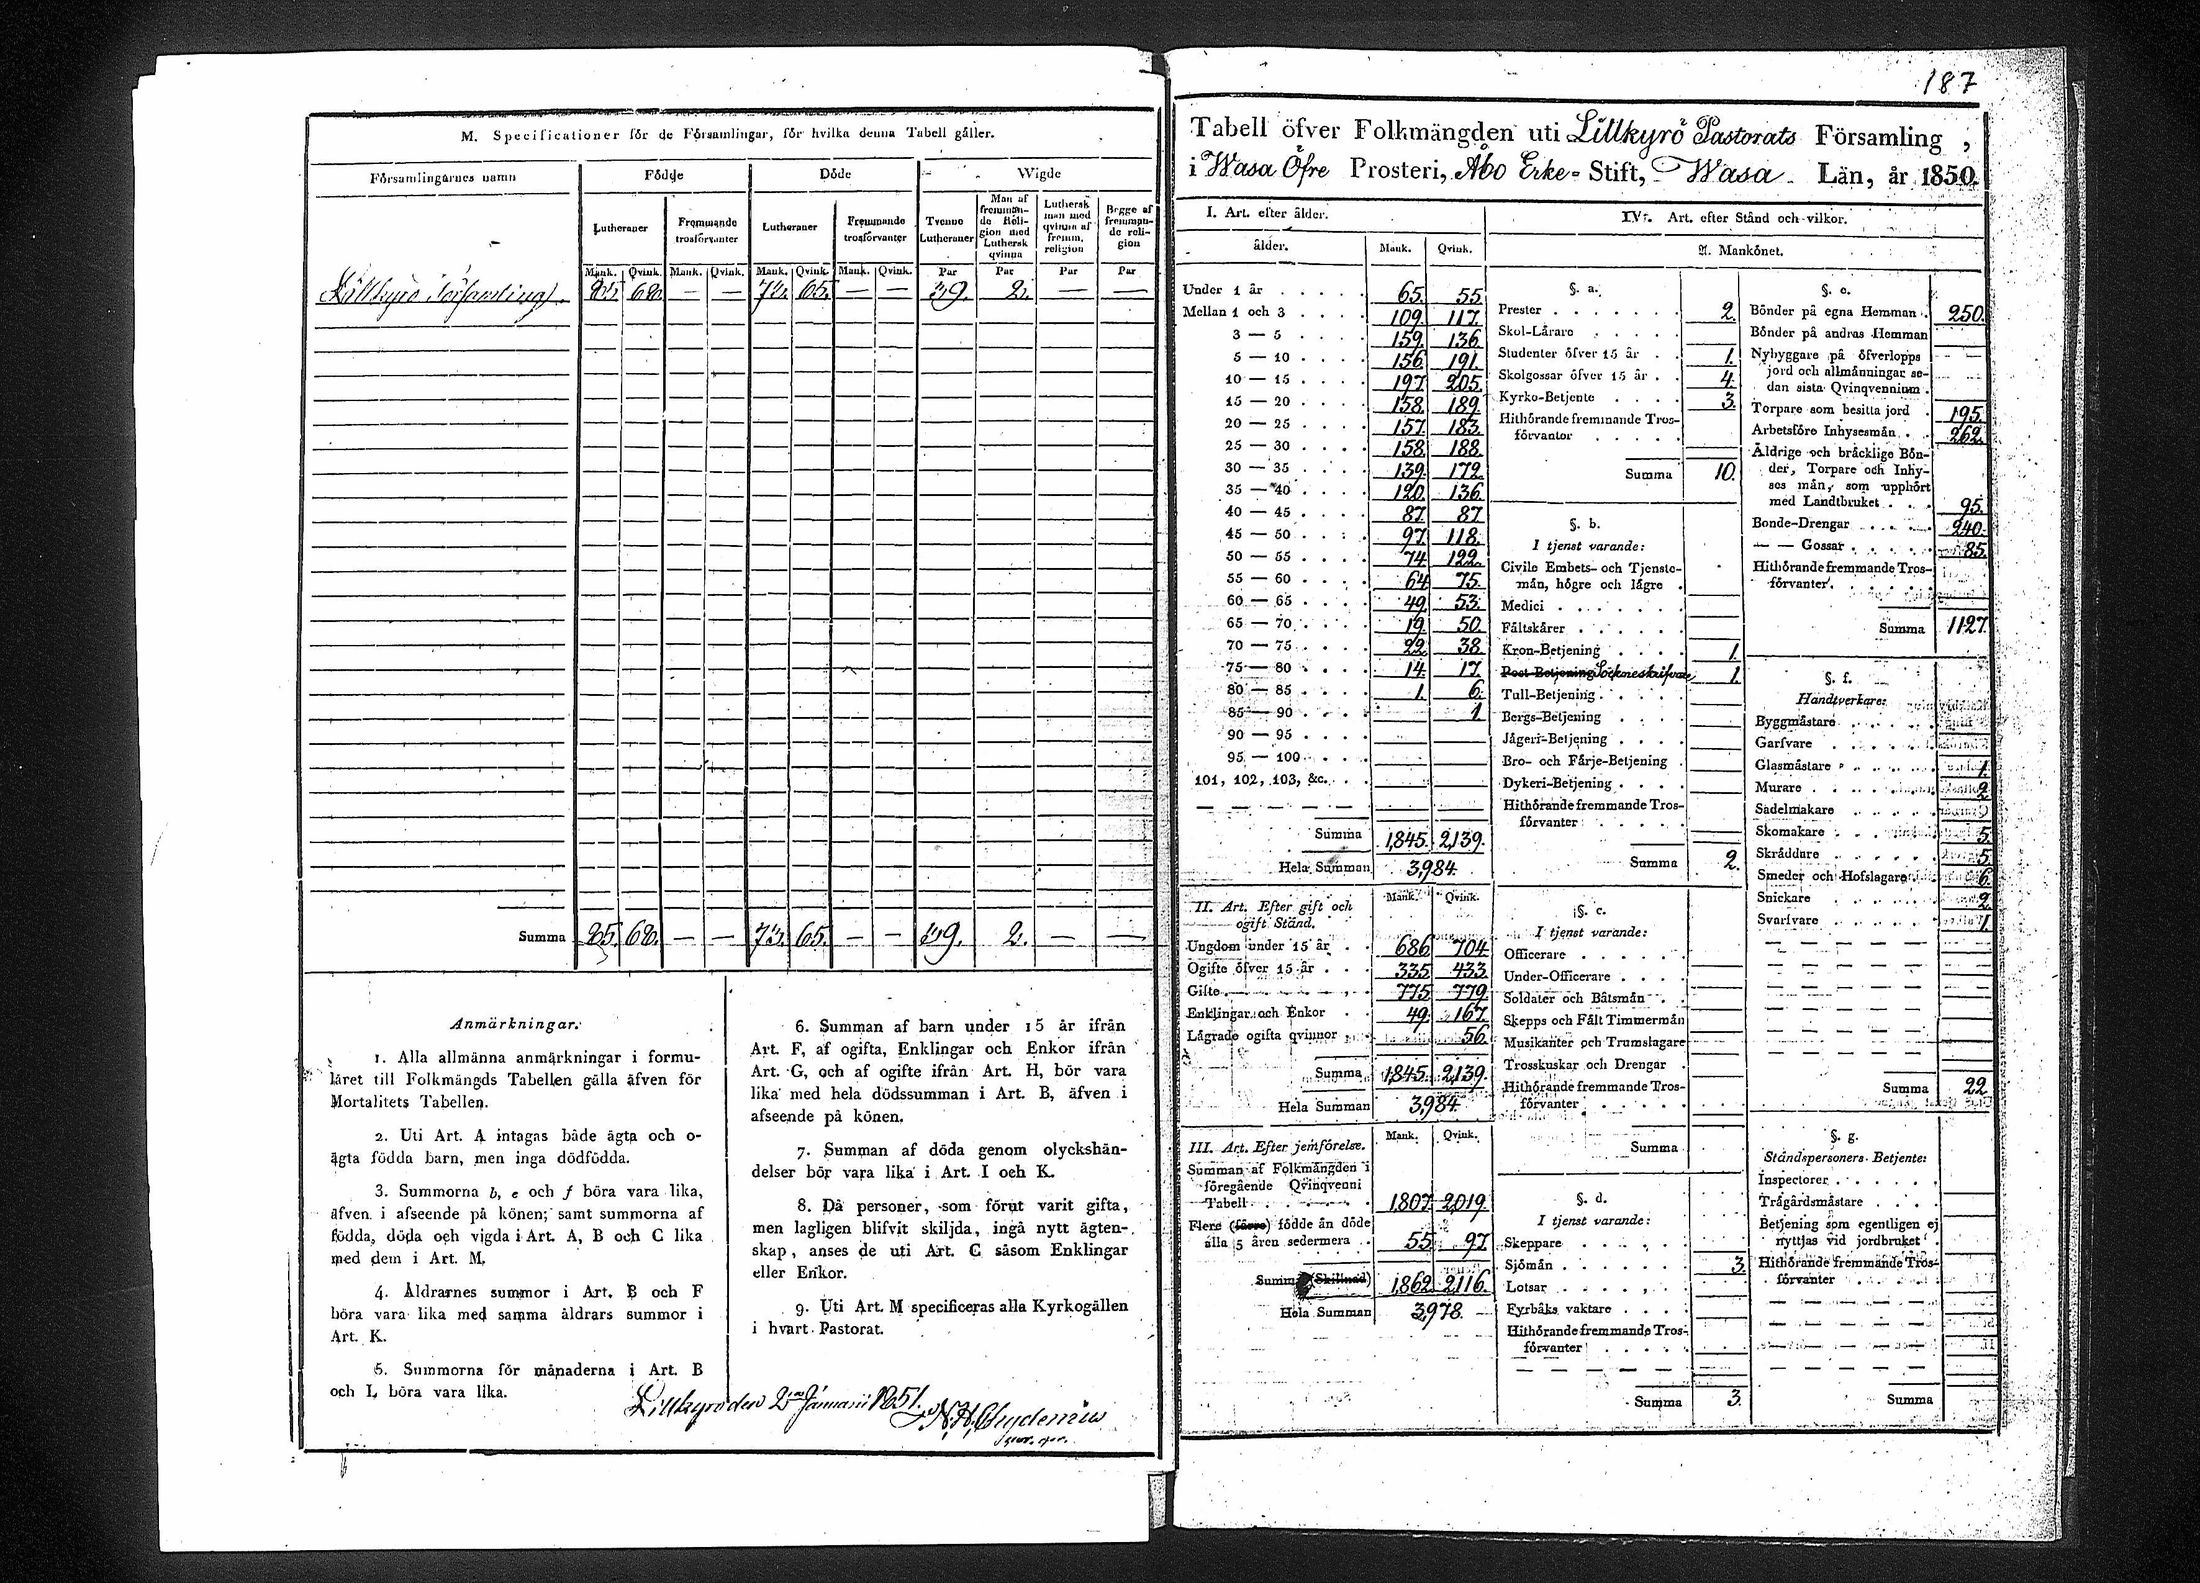 M. Specificationer för de Församlingar, för hvilka denna Tabell gäller.
Församlingarnes namn Födde Döde Wigde
Lutheraner Fremmande trosförvanter Lutheraner Fremmande trosförvanter Tvenne Lutheraner Man af fremmande Religion med Luthersk qvinna Luthersk man med qvinna af fremm. religion Begge af fremmande religion
Mank. Qvink. Mank. Qvink. Mank. Qvink. Mank. Qvink. Par Par Par Par
Lillkyro Församling 85. 68. — — 73. 65. — — 39. 2. — —
Summa 85. 68. — — 73. 65. — — 39. 2. — —
Anmärkningar.
1. Alla allmänna anmärkningar i formu-
läret till Folkmängds Tabellen gälla äfven för
Mortalitets Tabellen.
2. Uti Art. A intagas både ägta och o-
ägta födda barn, men inga dödfödda.
3. Summorna b, e och f böra vara lika,
äfven i afseende på könen; samt summorna af
födda, döda och vigda i Art. A, B och C lika
med dem i Art. M.
4. Åldrarnes summor i Art. B och F
böra vara lika med samma åldrars summor i
Art. K.
5. Summorna för månaderna i Art. B
och L böra vara lika.
6. Summan af barn under 15 år ifrån
Art. F, af ogifta, Enklingar och Enkor ifrån
Art. G, och af ogifte ifrån Art. H, bör vara
lika med hela dödssumman i Art. B, äfven i
afseende på könen.
7. Summan af döda genom olyckshän-
delser bör vara lika i Art. I och K.
8. Då personer, som förut varit gifta,
men lagligen blifvit skiljda, ingå nytt ägten-
skap, anses de uti Art. C såsom Enklingar
eller Enkor.
9. Uti Art. M specificeras alla Kyrkogällen
i hvart Pastorat.
Lillkyro den 2 Januarii 1851.
187
Tabell öfver Folkmängden uti Lillkyrö Pastorats Församling,
i Wasa Öfre Prosteri, Åbo Erke- Stift, Wasa Län, år 1850.
I. Art. efter ålder.
ålder. Mank. Qvink.
Under 1 år 65. 55.
Mellan 1 och 3 109. 117.
3 — 5 159. 136.
5 — 10 156. 191.
10 — 15 197. 205.
15 — 20 158. 189.
20 — 25 157. 183.
25 — 30 158. 188.
30 — 35 139. 172.
35 — 40 120. 136.
40 — 45 87. 87.
45 — 50 97. 118.
50 — 55 74. 122.
55 — 60 64. 75.
60 — 65 49. 53.
65 — 70 19. 50.
70 — 75 22. 38.
75 — 80 14. 17.
80 — 85 1. 6.
85 — 90 1.
90 — 95
95 — 100
101, 102, 103, &c.
Summa 1,845. 2,139.
Hela Summan 3,984.
II. Art. Efter gift och ogift Stånd. Mank. Qvink.
Ungdom under 15 år 686 704
Ogifte öfver 15 år 335 433
Gifte 775 779
Enklingar och Enkor 49. 167.
Lägrade ogifta qvinnor 56.
Summa 1,845. 2,139.
Hela Summan 3,984.
III. Art. Efter jemförelse. Mank. Qvink.
Summan af Folkmängden i
föregående Qvinqvenni
Tabell 1,807. 2,019.
Flere (färre) födde än döde
alla 5 åren sedermera 55. 97.
Summa (Skillnad) 1,862. 2,116.
Hela Summan 3,978.
IV. Art. efter Stånd och vilkor.
A. Mankönet.
§. a.
Prester 2.
Skol-Lärare
Studenter öfver 15 år 1.
Skolgossar öfver 15 år 4.
Kyrko-Betjente 3.
Hithörande fremmande Tros-
förvanter
Summa 10.
§. b.
I tjenst varande:
Civile Embets- och Tjenste-
män, högre och lägre
Medici
Fältskärer
Kron-Betjening 1.
Post-Betjening Sockneskrifvare 1.
Tull-Betjening
Bergs-Betjening
Jägeri-Betjening
Bro- och Färje-Betjening
Dykeri-Betjening
Hithörande fremmande Tros-
förvanter
Summa 2.
§. c.
I tjenst varande:
Officerare
Under-Officerare
Soldater och Båtsmän
Skepps och Fält Timmermän
Musikanter och Trumslagare
Trosskuskar och Drengar
Hithörande fremmande Tros-
förvanter
Summa
§. d.
I tjenst varande:
Skeppare
Sjömän 3.
Lotsar
Fyrbåks vaktare
Hithörande fremmande Tros-
förvanter
Summa 3.
§. e.
Bönder på egna Hemman 250.
Bönder på andras Hemman
Nybyggare på öfverlopps
jord och allmänningar se-
dan sista Qvinqvennium
Torpare som besitta jord 195.
Arbetsföre Inhysesmän 262.
Äldrige och bräcklige Bön-
der, Torpare och Inhy-
ses män, som upphört
med Landtbruket 95.
Bonde-Drengar 240.
— — Gossar 85.
Hithörande fremmande Tros-
förvanter
Summa 1127.
§. f.
Handtverkare:
Byggmästare
Garfvare
Glasmästare 1.
Murare 2.
Sadelmakare
Skomakare 5.
Skräddare 5.
Smeder och Hofslagare 6.
Snickare 2.
Svarfvare 1.
Summa 22
§. g.
Ståndspersoners Betjente:
Inspectorer
Trägårdsmästare
Betjening som egentligen ej
nyttjas vid jordbruket
Hithörande fremmande Tros-
förvanter
Summa